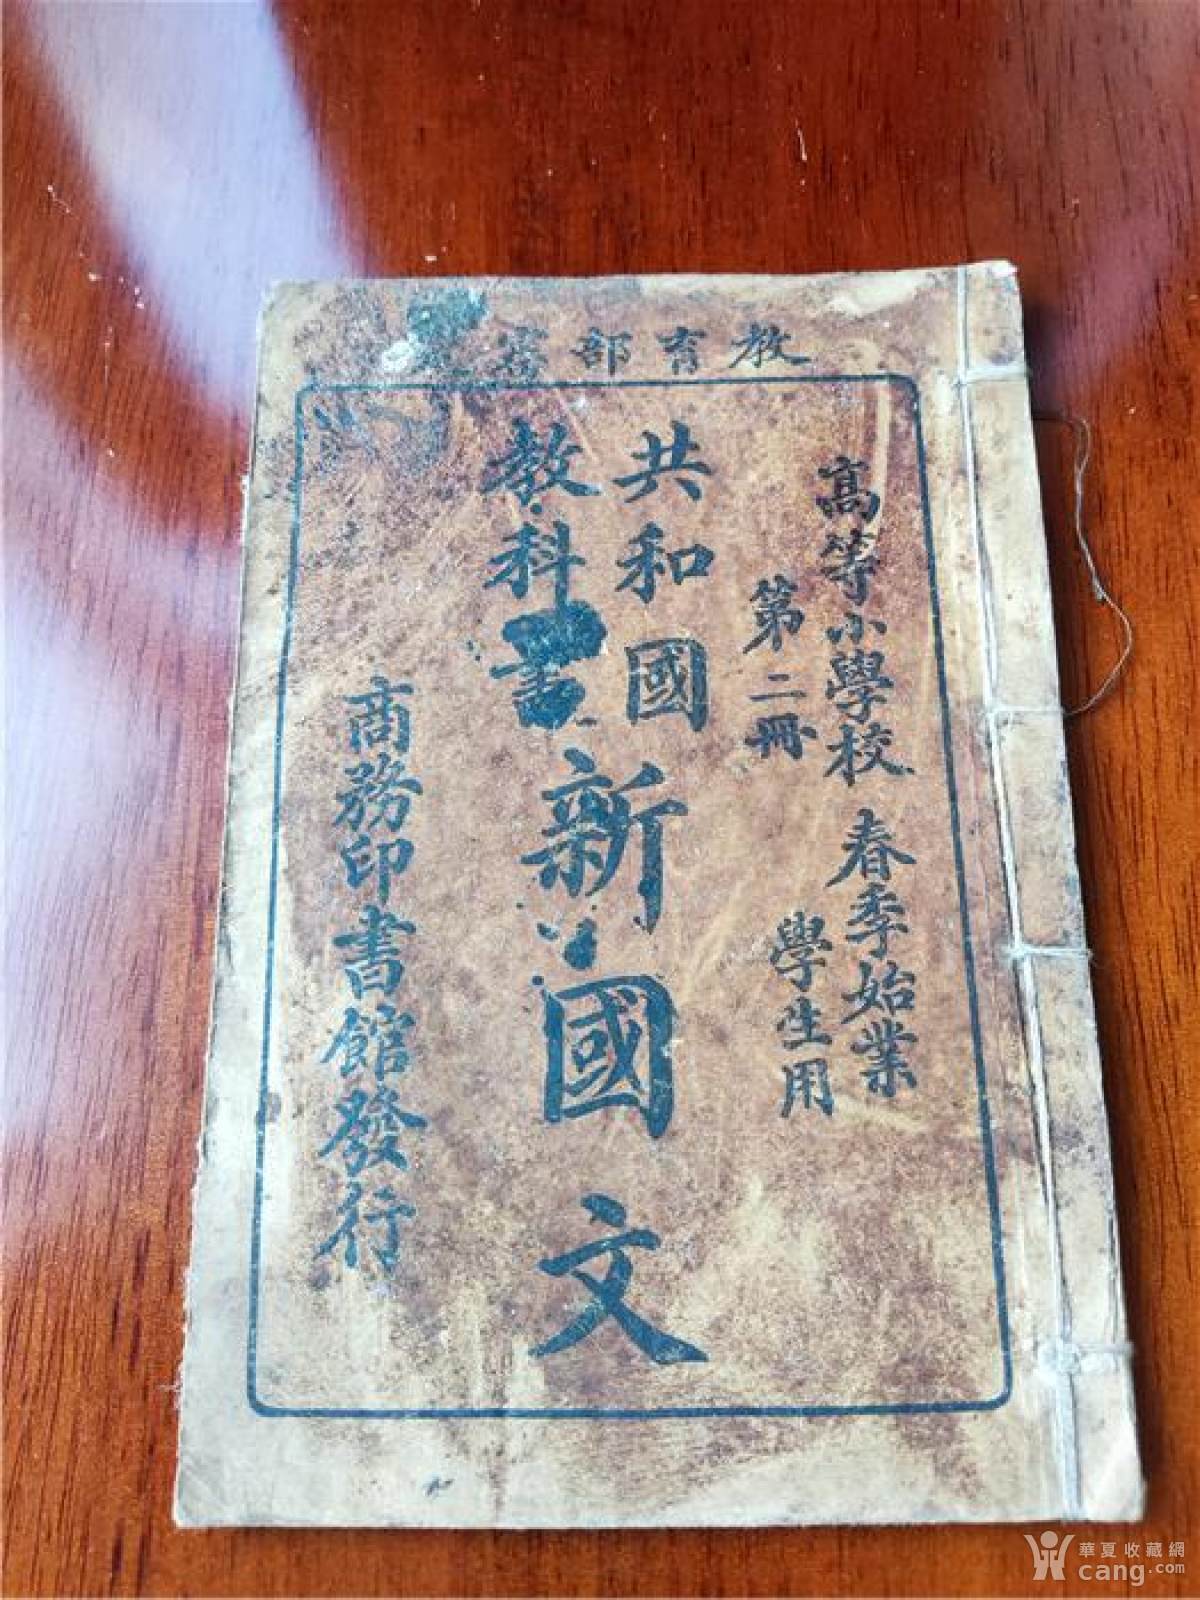 教育部審
高等小學校 春季始業
第二冊 學生用
共和國
教科書
新國文
商務印書館發行
華夏收藏網
cang.com